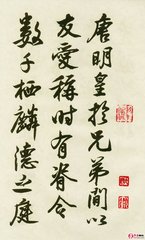 唐明皇於兄弟間以
友愛稱時有脊令
數千栖麟德之庭